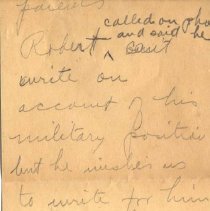 papers
called on pho
Robert ^ and said he
can't
write on
account of his
military position
but he wishes us
to write for him